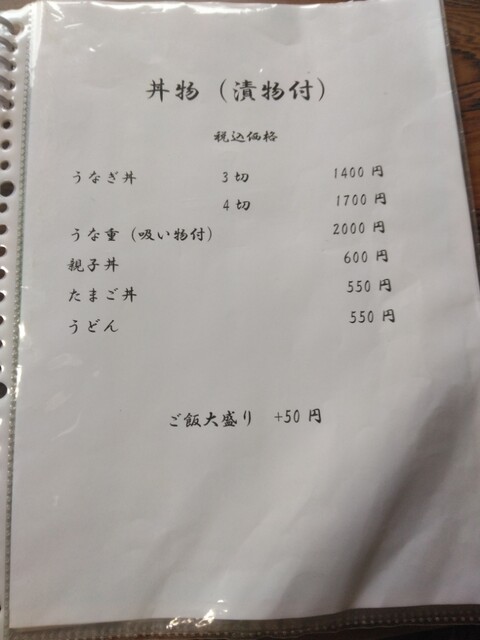 丼物（漬物付）
税込価格
うなぎ丼 3切 1400円
4切 1700円
うな重（吸い物付） 2000円
親子丼 600円
たまご丼 550円
うどん 550円
ご飯大盛り +50円